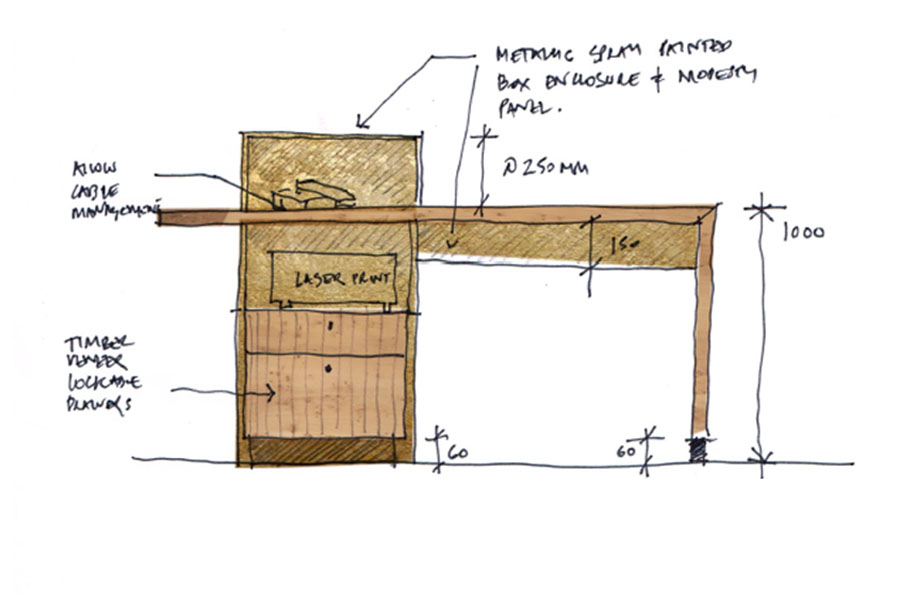 METALLIC SPRAY PAINTED
BOX ENCLOSURE & MODESTY
PANEL.
ALLOW
CABLE
MANAGEMENT
~250MM
150
1000
LASER PRINT
TIMBER
VENEER
LOCKABLE
DRAWERS
60
60